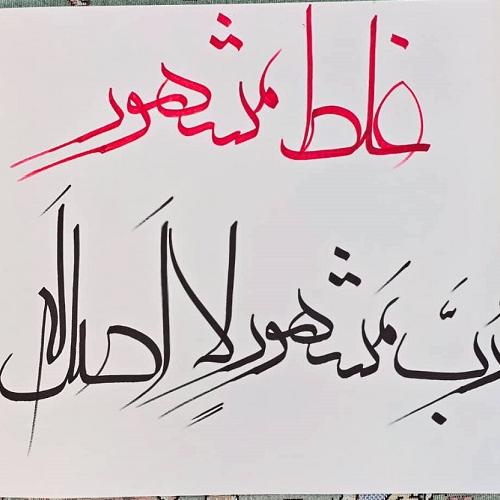 غلط مشهورِ
رَبَّ مَشهور لا اَصلَ لَه